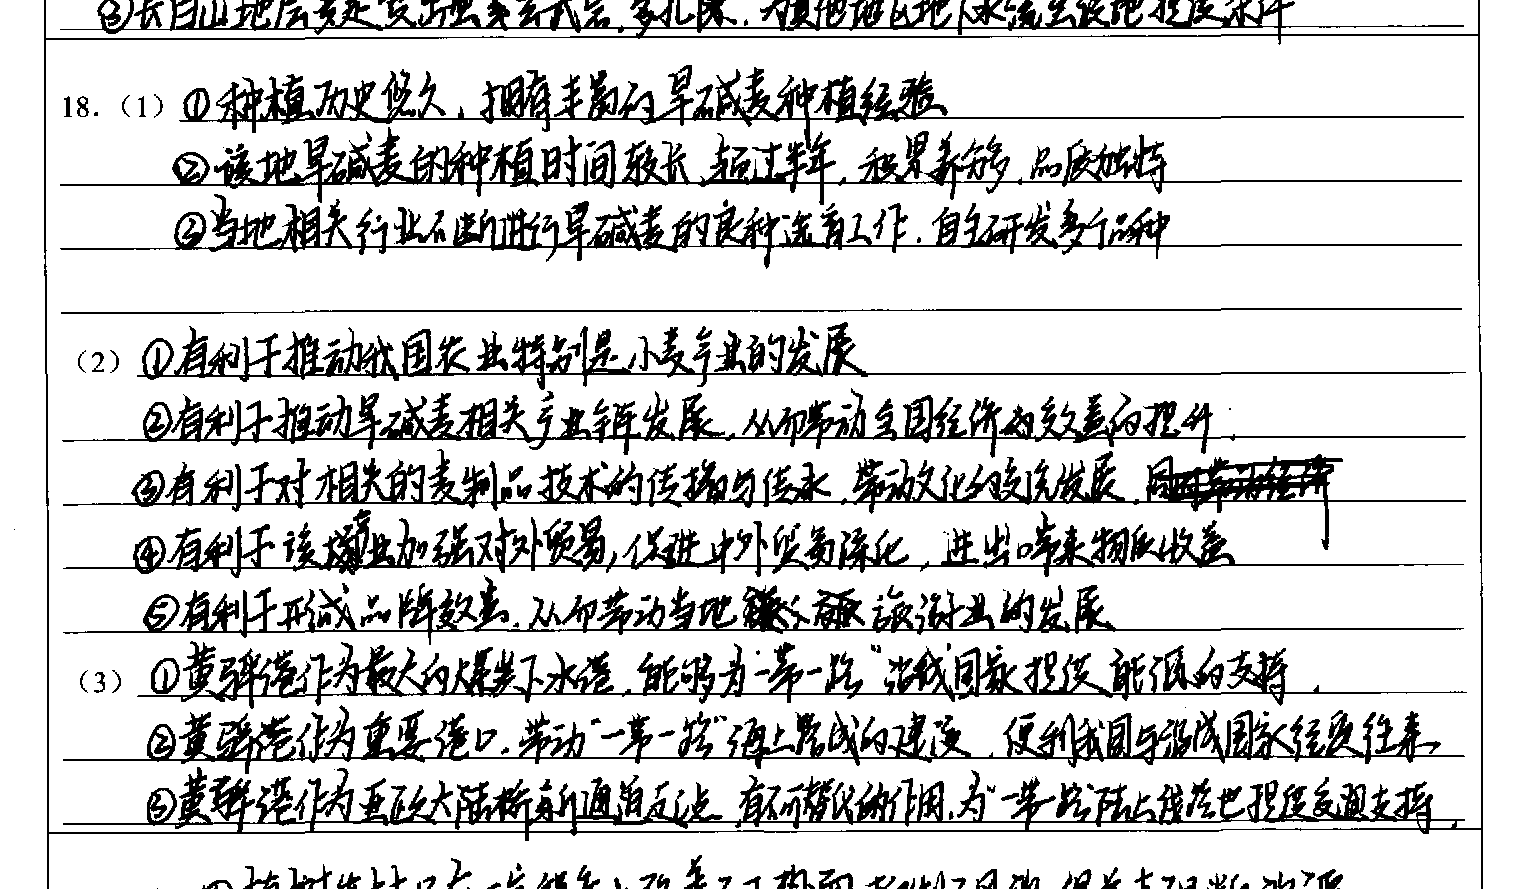 ③长白山地层多是玄武岩,多孔隙,为其他地区地下水流出提供条件
18.(1)①种植历史悠久,拥有丰富的旱碱麦种植经验
②该地旱碱麦的种植时间较长,超过半年,积累养分多,品质独特
③当地相关行业不断进行旱碱麦的良种选育工作,自主研发多个品种
(2)①有利于推动我国农业特别是小麦产业的发展
②有利于推动旱碱麦相关产业链发展,从而带动全国经济效益的提升.
③有利于对相关的麦制品技术的传播与传承,带动文化的交流发展,
④有利于该产业加强对外贸易,促进中外贸易深化,进出口带来物质收益
⑤有利于形成品牌效应,从而带动当地旅游业的发展
(3)①黄骅港作为最大的煤炭下水港,能够为“一带一路”沿线国家提供能源的支持.
②黄骅港作为重要港口,带动“一带一路”海上路线的建设,便利我国与沿线国家经贸往来
③黄骅港作为亚欧大陆桥新通道起点,有不可替代的作用,为“一带一路”陆上线路也提供交通支持.